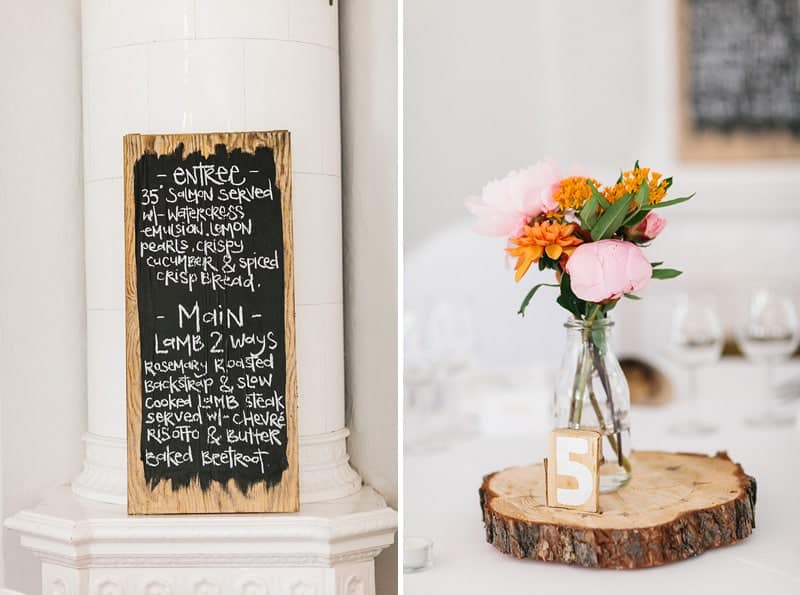 - ENTREE -
35° SALMON SERVED
w/- WATERCRESS
EMULSION, LEMON
PEARLS, CRISPY
CUCUMBER & SPICED
CRISPBREAD.
- MAIN -
LAMB 2 WAYS
ROSEMARY ROASTED
BACKSTRAP & SLOW
COOKED LAMB STEAK
SERVED w/- CHEVRÉ
RISOTTO & BUTTER
BAKED BEETROOT
5